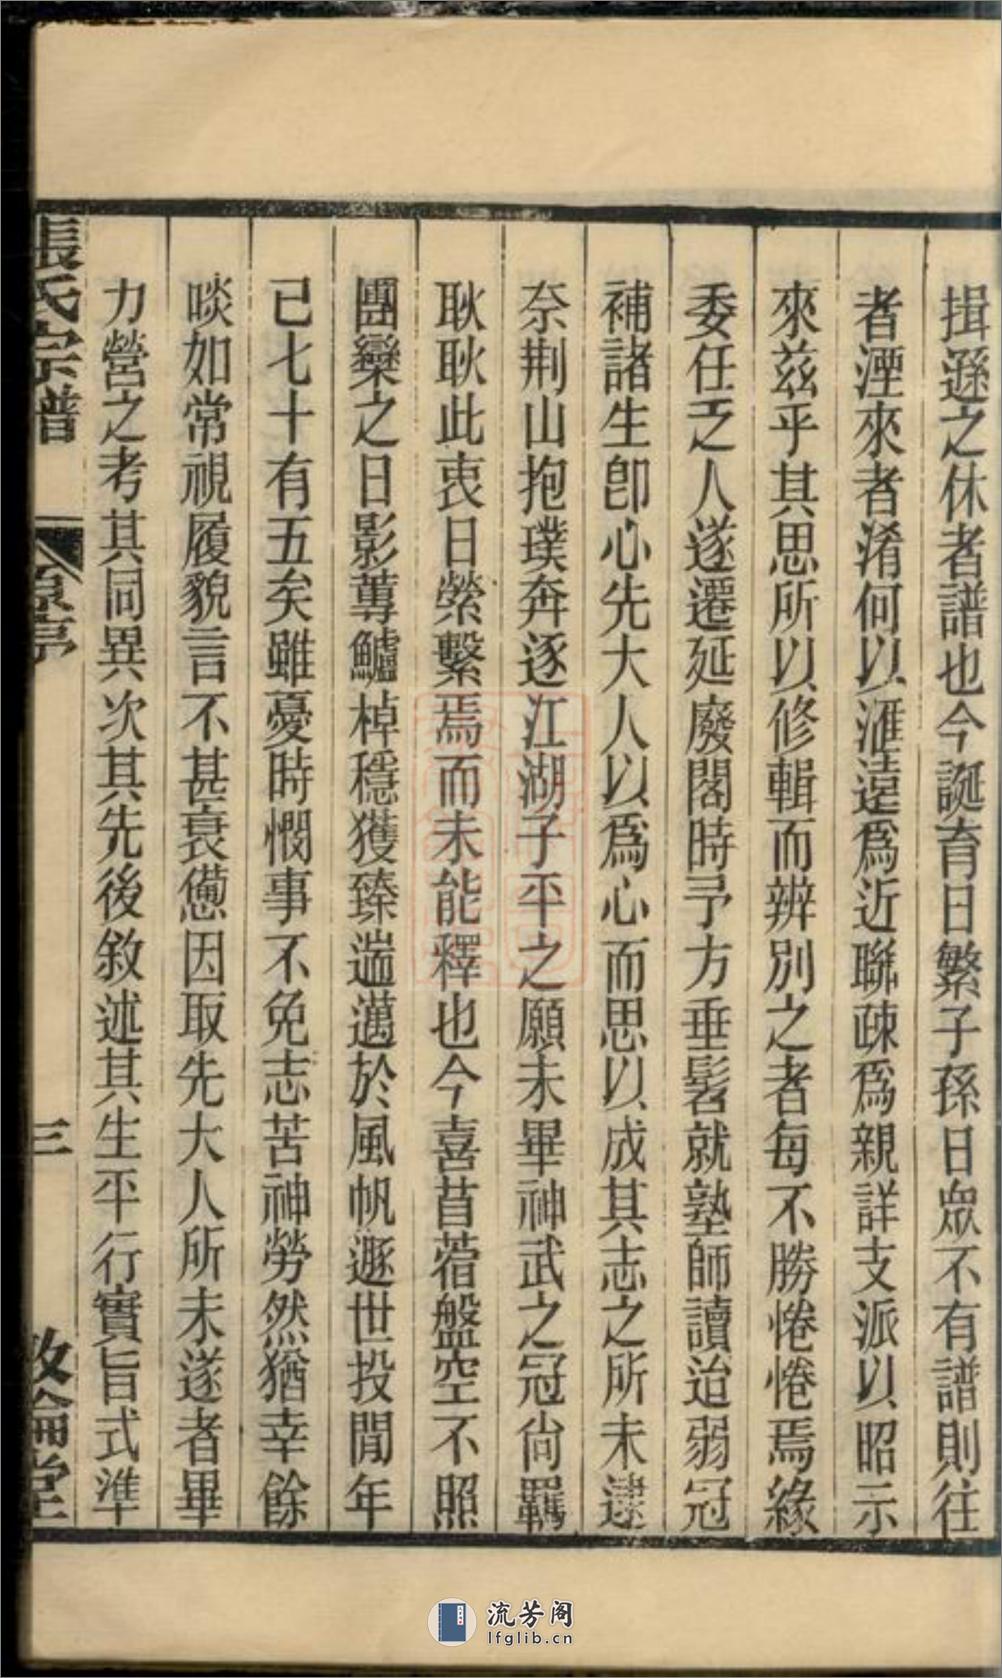 揖遜之休者譜也今誕育日繁子孫日眾不有譜則往
者湮來者淆何以滙遠爲近聯疎爲親詳支派以昭示
來茲乎其思所以修輯而辨別之者每不勝惓惓焉緣
委任乏人遂遷延廢閣時予方垂髫就塾師讀迨弱冠
補諸生卽心先大人以爲心而思以成其志之所未逮
奈荆山抱璞奔逐江湖子平之願未畢神武之冠尙羈
耿耿此衷日縈繫焉而未能釋也今喜苜蓿盤空不照
團欒之日影蓴鱸棹穩獲臻遄邁於風帆遯世投閒年
已七十有五矣雖憂時憫事不免志苦神勞然猶幸餘
啖如常視履貌言不甚衰憊因取先大人所未遂者畢
力營之考其同異次其先後敘述其生平行實旨式準
張氏宗譜
原序
三
敦倫堂
流芳阁
lfglib.cn